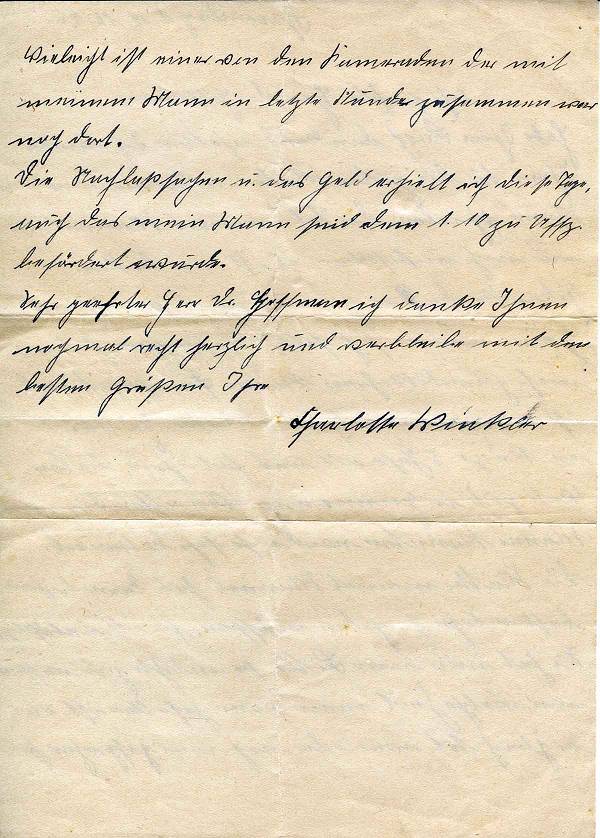 Vieleicht ist einer von den Kameraden der mit
meinem Mann in letzte Stunde zusammen war
noch dort.
Die Nachlaßsachen u. das Geld erhielt ich diese Tage,
auch das mein Mann seid dem 1.10 zu Uffz.
befördert wurde.
Sehr geehrter Herr Dr. Hoffmann ich danke Ihnen
nochmal recht herzlich und verbleibe mit den
besten Grüßen Ihre
Charlotte Winkler